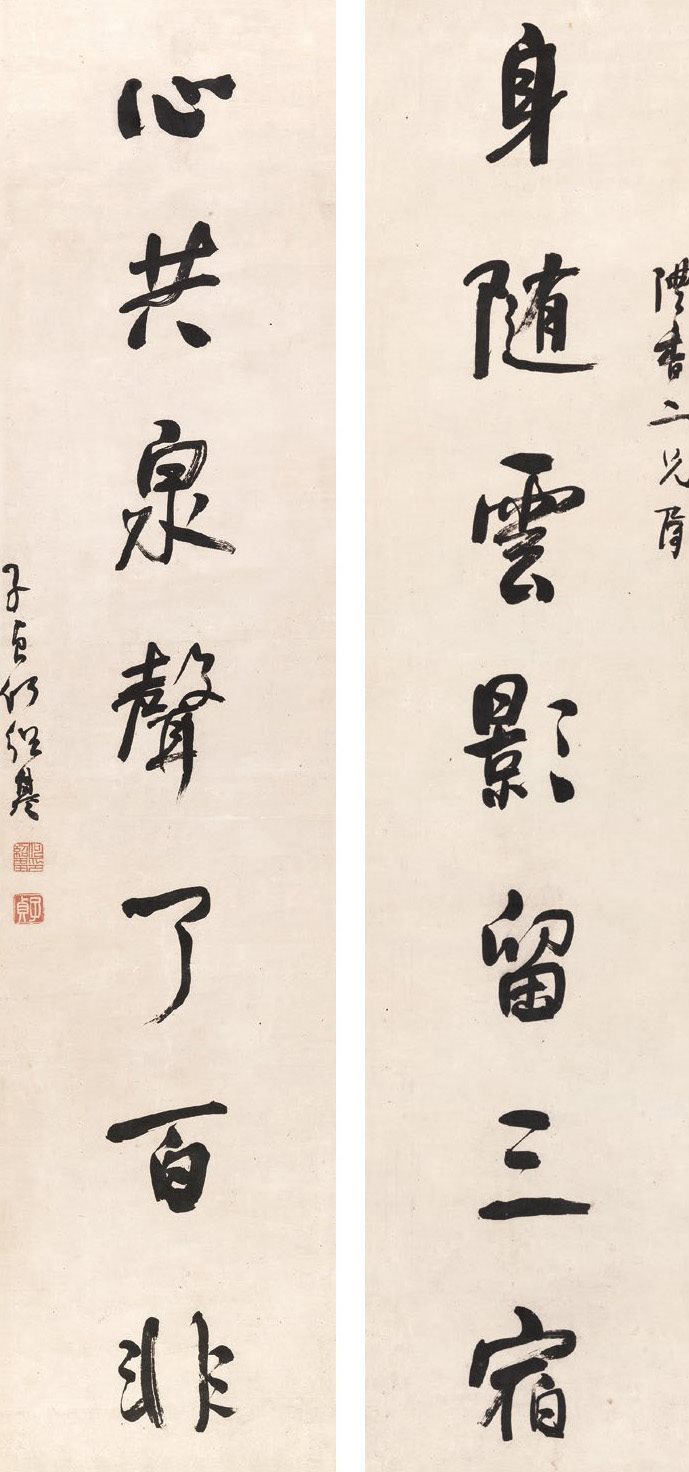 澧香二兄屬
身隨雲影留三宿
心共泉聲了百非
子貞何紹基
子貞